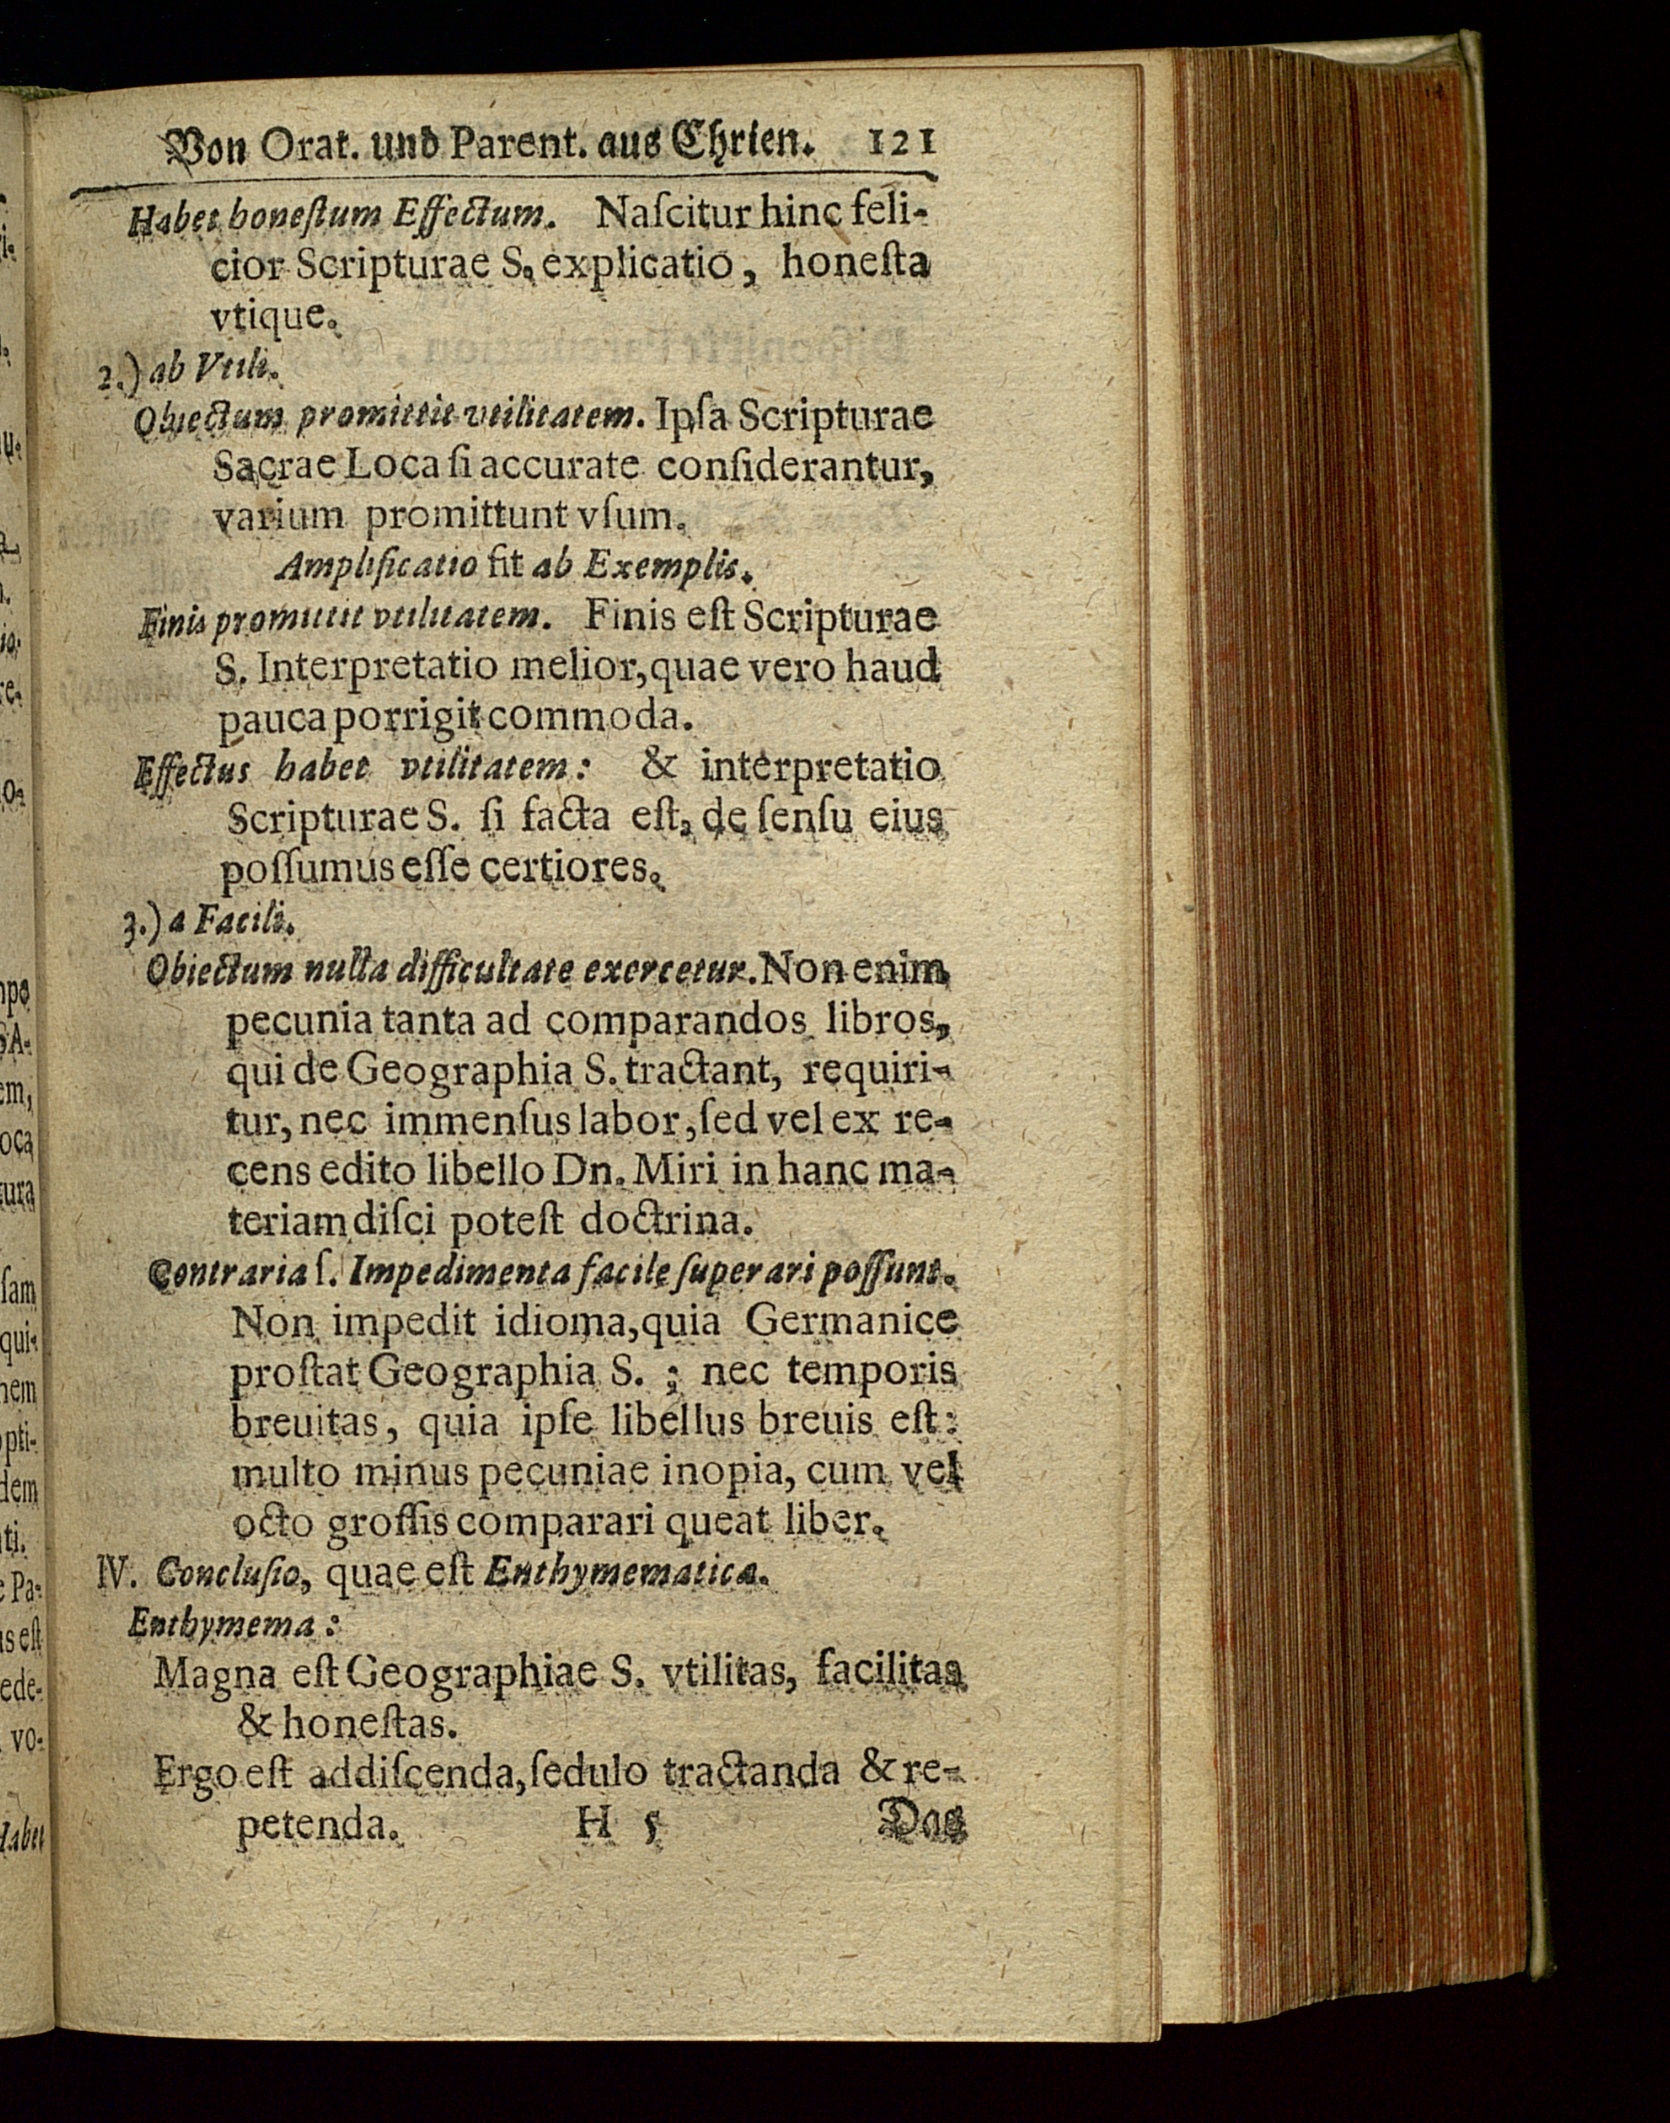 Von Orat. und Parent. aus Chrien. 121
Habet honeſtum Effectum. Naſcitur hinc feli-
cior Scripturae S. explicatio, honeſta
vtique.
2.) ab Vtili.
Obiectum promittit vtilitatem. Ipſa Scripturae
Sacrae Loca ſi accurate conſiderantur,
varium promittunt vſum.
Amplificatio fit ab Exemplis.
Finis promittit vtilitatem. Finis eſt Scripturae
S. Interpretatio melior, quae vero haud
pauca porrigit commoda.
Effectus habet vtilitatem: & interpretatio
Scripturae S. ſi facta eſt, de ſenſu eius
poſſumus eſſe certiores.
3.) a Facili.
Obiectum nulla difficultate exercetur. Non enim
pecunia tanta ad comparandos libros,
qui de Geographia S. tractant, requiri-
tur, nec immenſus labor, ſed vel ex re-
cens edito libello Dn. Miri in hanc ma-
teriam diſci poteſt doctrina.
Contraria ſ. Impedimenta facile ſuperari poſſunt.
Non impedit idioma, quia Germanice
proſtat Geographia S. ; nec temporis
breuitas, quia ipſe libellus breuis eſt:
multo minus pecuniae inopia, cum vel
octo groſſis comparari queat liber.
IV. Concluſio, quae eſt Enthymematica.
Enthymema:
Magna eſt Geographiae S. vtilitas, facilitas
& honeſtas.
Ergo eſt addiſcenda, ſedulo tractanda & re-
petenda. H 5 Das